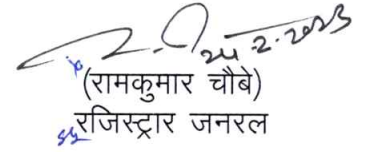 24.2.2023
(रामकुमार चौबे)
रजिस्ट्रार जनरल